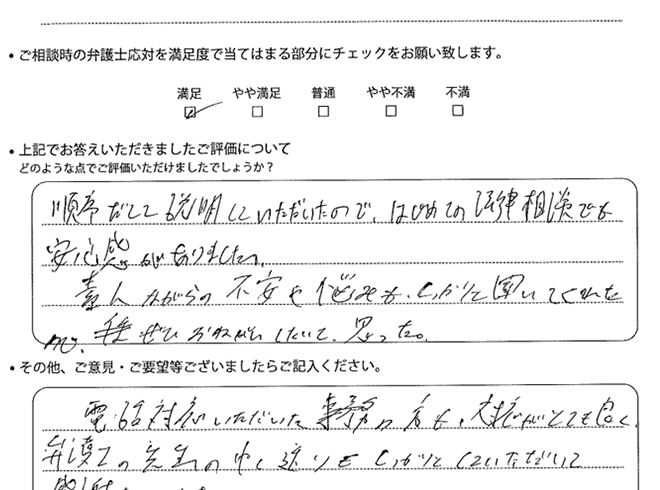 • ご相談時の弁護士応対を満足度で当てはまる部分にチェックをお願い致します。
満足 やや満足 普通 やや不満 不満
• 上記でお答えいただきましたご評価について
どのような点でご評価いただけましたでしょうか？
順序だてて説明していただいたので、はじめての法律相談でも
安心感がありました。
素人ながらの不安や悩みも、しっかりと聞いてくれた
ので、ぜひおねがいしたいと思った。
• その他、ご意見・ご要望等ございましたらご記入ください。
電話対応いただいた事務の方も、対応がとても良く、
弁護士の先生の申し送りもしっかりとしていただいて